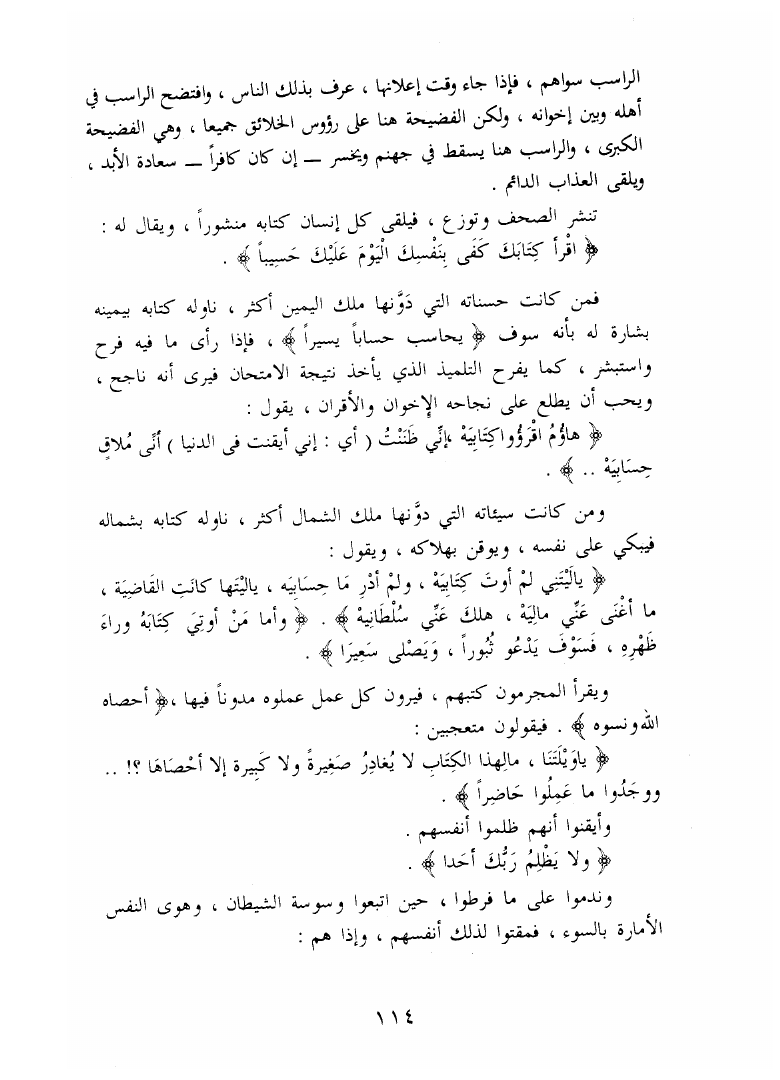 الراسب سواهم ، فإذا جاء وقت إعلانها ، عرف بذلك الناس ، وافتضح الراسب في
أهله وبين إخوانه ، ولكن الفضيحة هنا على رؤوس الخلائق جميعا ، وهي الفضيحة
الكبرى ، والراسب هنا يسقط في جهنم ويخسر — إن كان كافراً — سعادة الأبد ،
ويلقى العذاب الدائم .
تنشر الصحف وتوزع ، فيلقى كل إنسان كتابه منشوراً ، ويقال له :
﴿ اقْرأ كِتَابَكَ كَفَى بِنَفْسِكَ الْيَوْمَ عَلَيْكَ حَسِيباً ﴾ .
فمن كانت حسناته التي دَوَّنها ملك اليمين أكثر ، ناوله كتابه بيمينه
بشارة له بأنه سوف ﴿ يحاسب حساباً يسيراً ﴾ ، فإذا رأى ما فيه فرح
واستبشر ، كما يفرح التلميذ الذي يأخذ نتيجة الامتحان فيرى أنه ناجح ،
ويحب أن يطلع على نجاحه الإخوان والأقران ، يقول :
﴿ هاؤُمُ اقْرَؤُوا كِتَابِيَهْ ، إنِّي ظَنَنْتُ ( أي : إني أيقنت فى الدنيا ) أنِّى مُلاقٍ
حِسَابِيَهْ .. ﴾ .
ومن كانت سيئاته التي دوَّنها ملك الشمال أكثر ، ناوله كتابه بشماله
فيبكي على نفسه ، ويوقن بهلاكه ، ويقول :
﴿ يالَيْتَنِي لمْ أوتَ كِتَابِيَهْ ، ولمْ أدْرِ مَا حِسَابِيَه ، ياليْتَها كانَتِ القَاضِيَة ،
ما أغْنَى عَنِّي مالِيَهْ ، هلكَ عَنِّي سُلْطَانِيهْ ﴾ . ﴿ وأما مَنْ أوتِيَ كِتَابَهُ وراءَ
ظَهْرِهِ ، فَسَوْفَ يَدْعُو ثُبُوراً ، وَيَصْلى سَعِيرَا ﴾ .
ويقرأ المجرمون كتبهم ، فيرون كل عمل عملوه مدوناً فيها ، ﴿ أحصاه
الله ونسوه ﴾ . فيقولون متعجبين :
﴿ ياوَيْلَتَنَا ، مالِهذا الكِتَابِ لا يُغادِرُ صَغِيرةً ولا كَبِيرة إلا أحْصَاهَا ؟! ..
ووجَدُوا ما عَمِلُوا حَاضِراً ﴾ .
وأيقنوا أنهم ظلموا أنفسهم .
﴿ ولا يَظْلِمُ رَبُّكَ أحَدا ﴾ .
وندموا على ما فرطوا ، حين اتبعوا وسوسة الشيطان ، وهوى النفس
الأمارة بالسوء ، فمقتوا لذلك أنفسهم ، وإذا هم :
١١٤